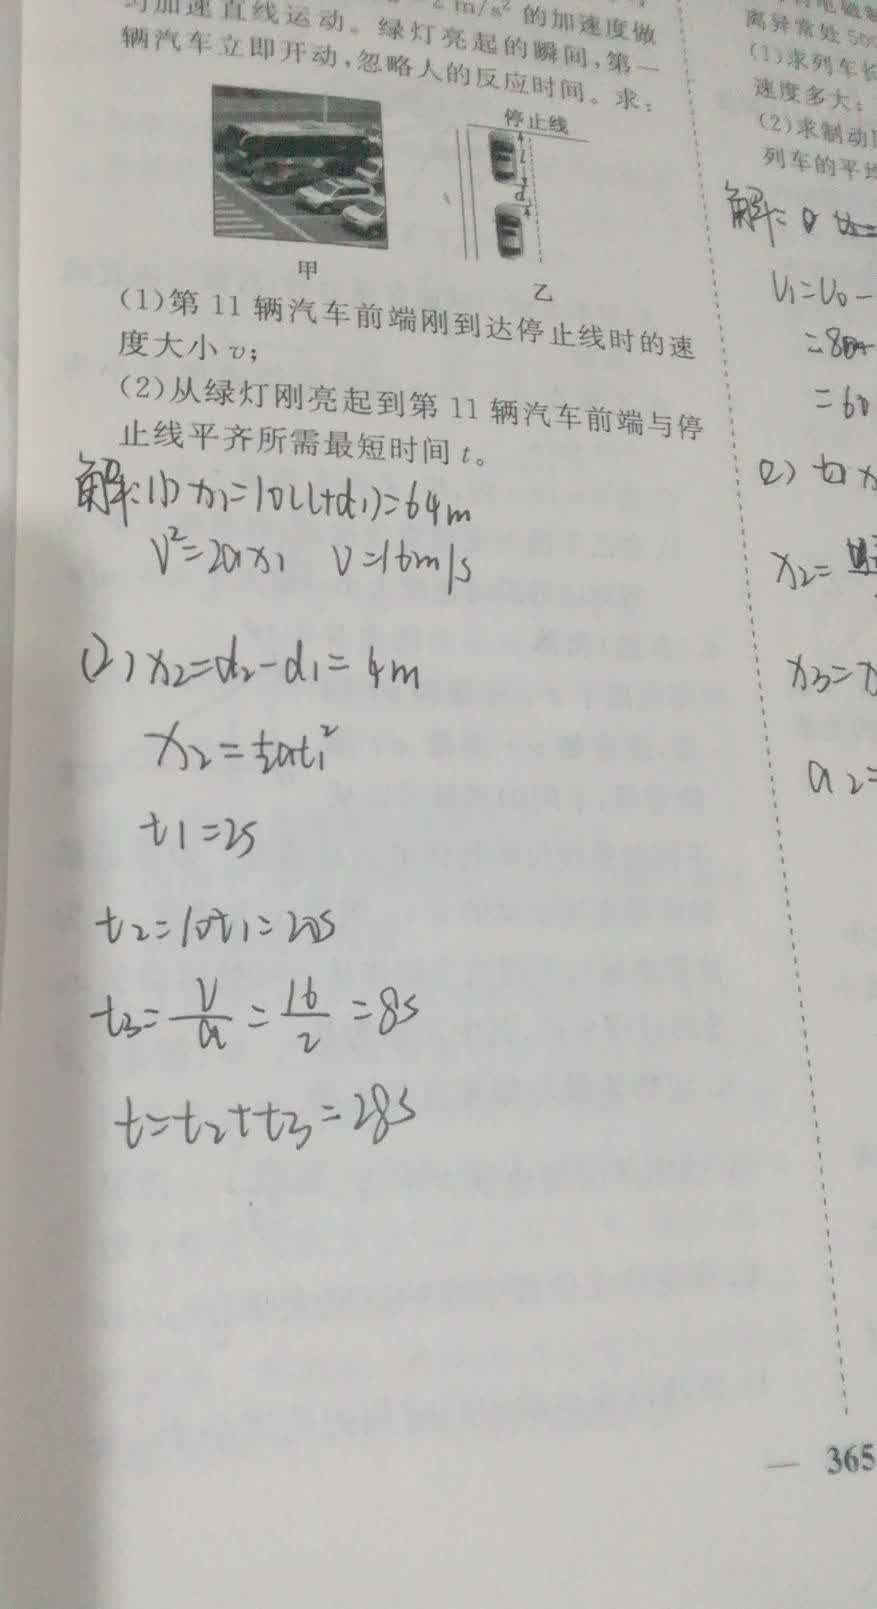 匀加速直线运动。绿灯亮起的瞬间,第一
2 m/s² 的加速度做
辆汽车立即开动,忽略人的反应时间。求:
停止线
l
d
甲
乙
(1)第 11 辆汽车前端刚到达停止线时的速
度大小 v;
(2)从绿灯刚亮起到第 11 辆汽车前端与停
止线平齐所需最短时间 t。
解:(1) x₁=10(l+d₁)=64m
V²=2ax₁ V=16m/s
(2) x₂=d₂-d₁=4m
x₂=½at₁²
t1=2s
t₂=10t₁=20s
t₃=V/a=16/2=8s
t=t₂+t₃=28s
离异常处 500
(1)求列车长
速度多大;
(2)求制动
列车的平均
解:
V₁=V₀-
=80
=60
(2)
x₂=
x₃=
a₂=
365